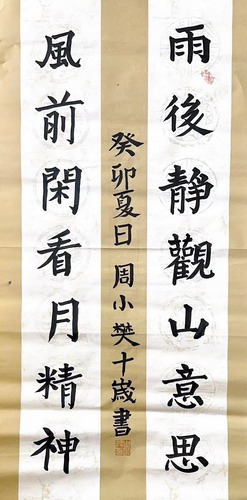 雨後靜觀山意思
風前閑看月精神
癸卯夏日 周小樊十歲書